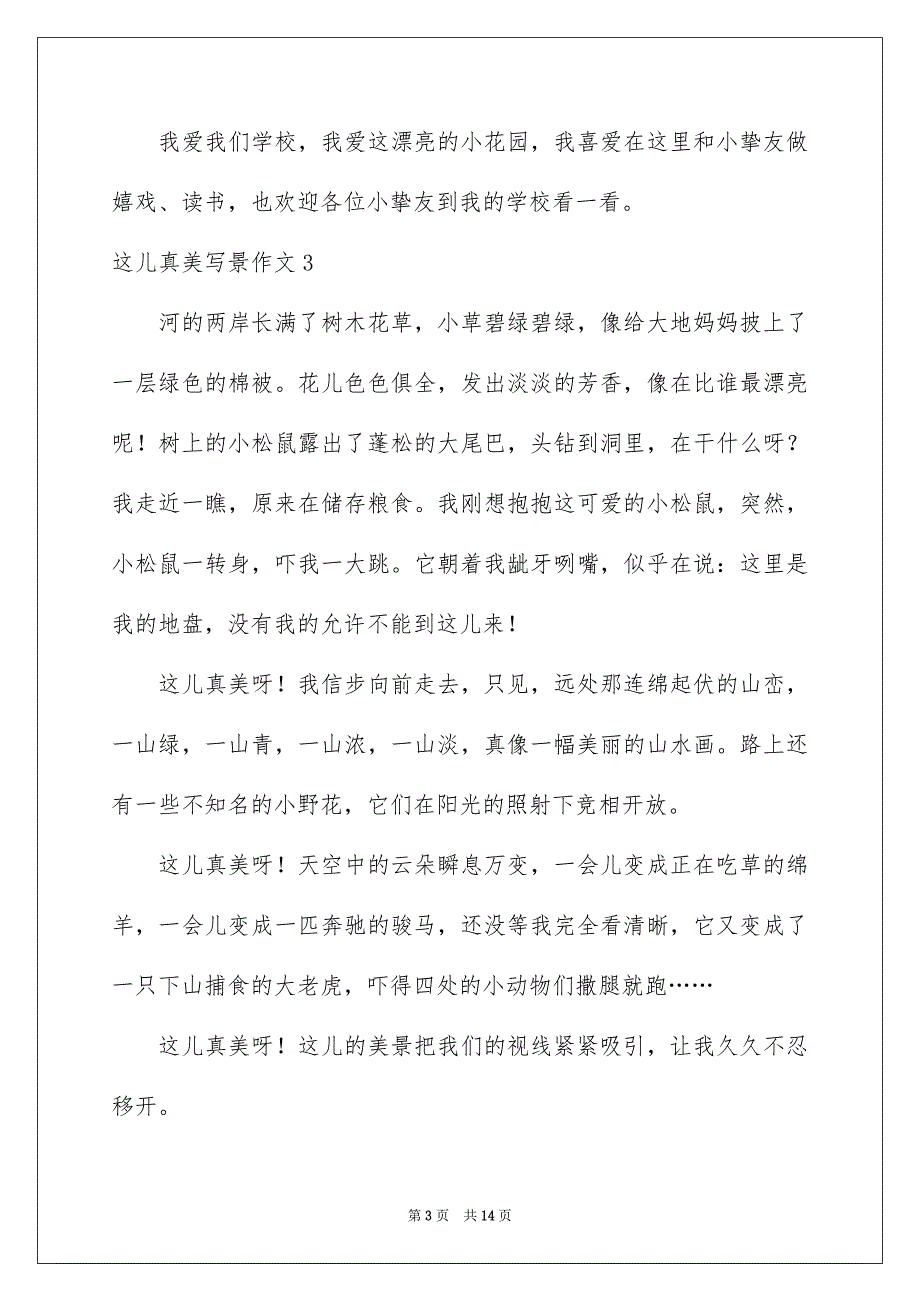 我爱我们学校，我爱这漂亮的小花园，我喜爱在这里和小挚友做
嬉戏、读书，也欢迎各位小挚友到我的学校看一看。
这儿真美写景作文 3
河的两岸长满了树木花草，小草碧绿碧绿，像给大地妈妈披上了
一层绿色的棉被。花儿色色俱全，发出淡淡的芳香，像在比谁最漂亮
呢！树上的小松鼠露出了蓬松的大尾巴，头钻到洞里，在干什么呀？
我走近一瞧，原来在储存粮食。我刚想抱抱这可爱的小松鼠，突然，
小松鼠一转身，吓我一大跳。它朝着我龇牙咧嘴，似乎在说：这里是
我的地盘，没有我的允许不能到这儿来！
这儿真美呀！我信步向前走去，只见，远处那连绵起伏的山峦，
一山绿，一山青，一山浓，一山淡，真像一幅美丽的山水画。路上还
有一些不知名的小野花，它们在阳光的照射下竞相开放。
这儿真美呀！天空中的云朵瞬息万变，一会儿变成正在吃草的绵
羊，一会儿变成一匹奔驰的骏马，还没等我完全看清晰，它又变成了
一只下山捕食的大老虎，吓得四处的小动物们撒腿就跑……
这儿真美呀！这儿的美景把我们的视线紧紧吸引，让我久久不忍
移开。
第 3 页 共 14 页